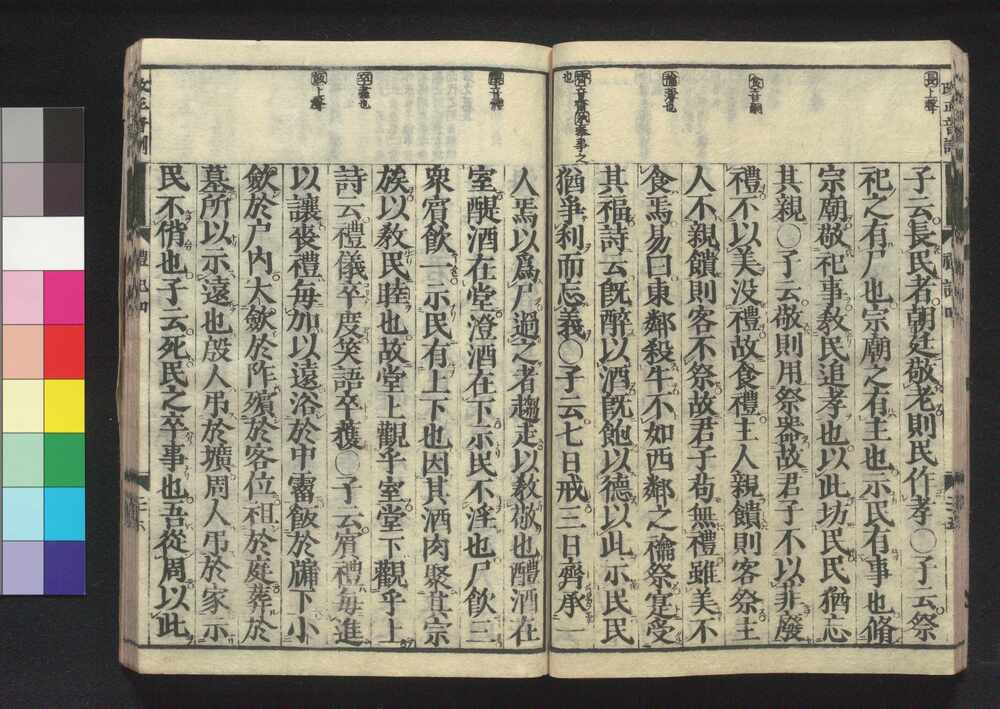 長上聲
食音嗣
禴薄也
承事之
也
子云長民者朝廷敬老則民作孝○子云祭
祀之有尸也宗廟之有主也示民有事也脩
宗廟敬祀事教民追孝也以此坊民民猶忘
其親○子云敬則用祭器故君子不以菲廢
禮不以美没禮故食禮主人親饋則客祭主
人不親饋則客不祭故君子苟無禮雖美不
食焉易曰東鄰殺牛不如西鄰之禴祭寔受
其福詩云既醉以酒既飽以德以此示民民
猶爭利而忘義○子云七日戒三日齊承一
人焉以爲尸過之者趨走以教敬也醴酒在
室醍酒在堂澄酒在下示民不淫也尸飲三
衆賓飲一示民有上下也因其酒肉聚其宗
族以教民睦也故堂上觀乎室堂下觀乎上
詩云禮儀卒度笑語卒獲○子云賓禮每進
以讓喪禮毎加以遠浴於中霤飯於牖下小
斂於戸内大斂於阼殯於客位祖於庭葬於
墓所以示遠也殷人弔於壙周人弔於家示
民不偝也子云死民之卒事也吾從周以此
卒盡也
飯上聲
禮記四